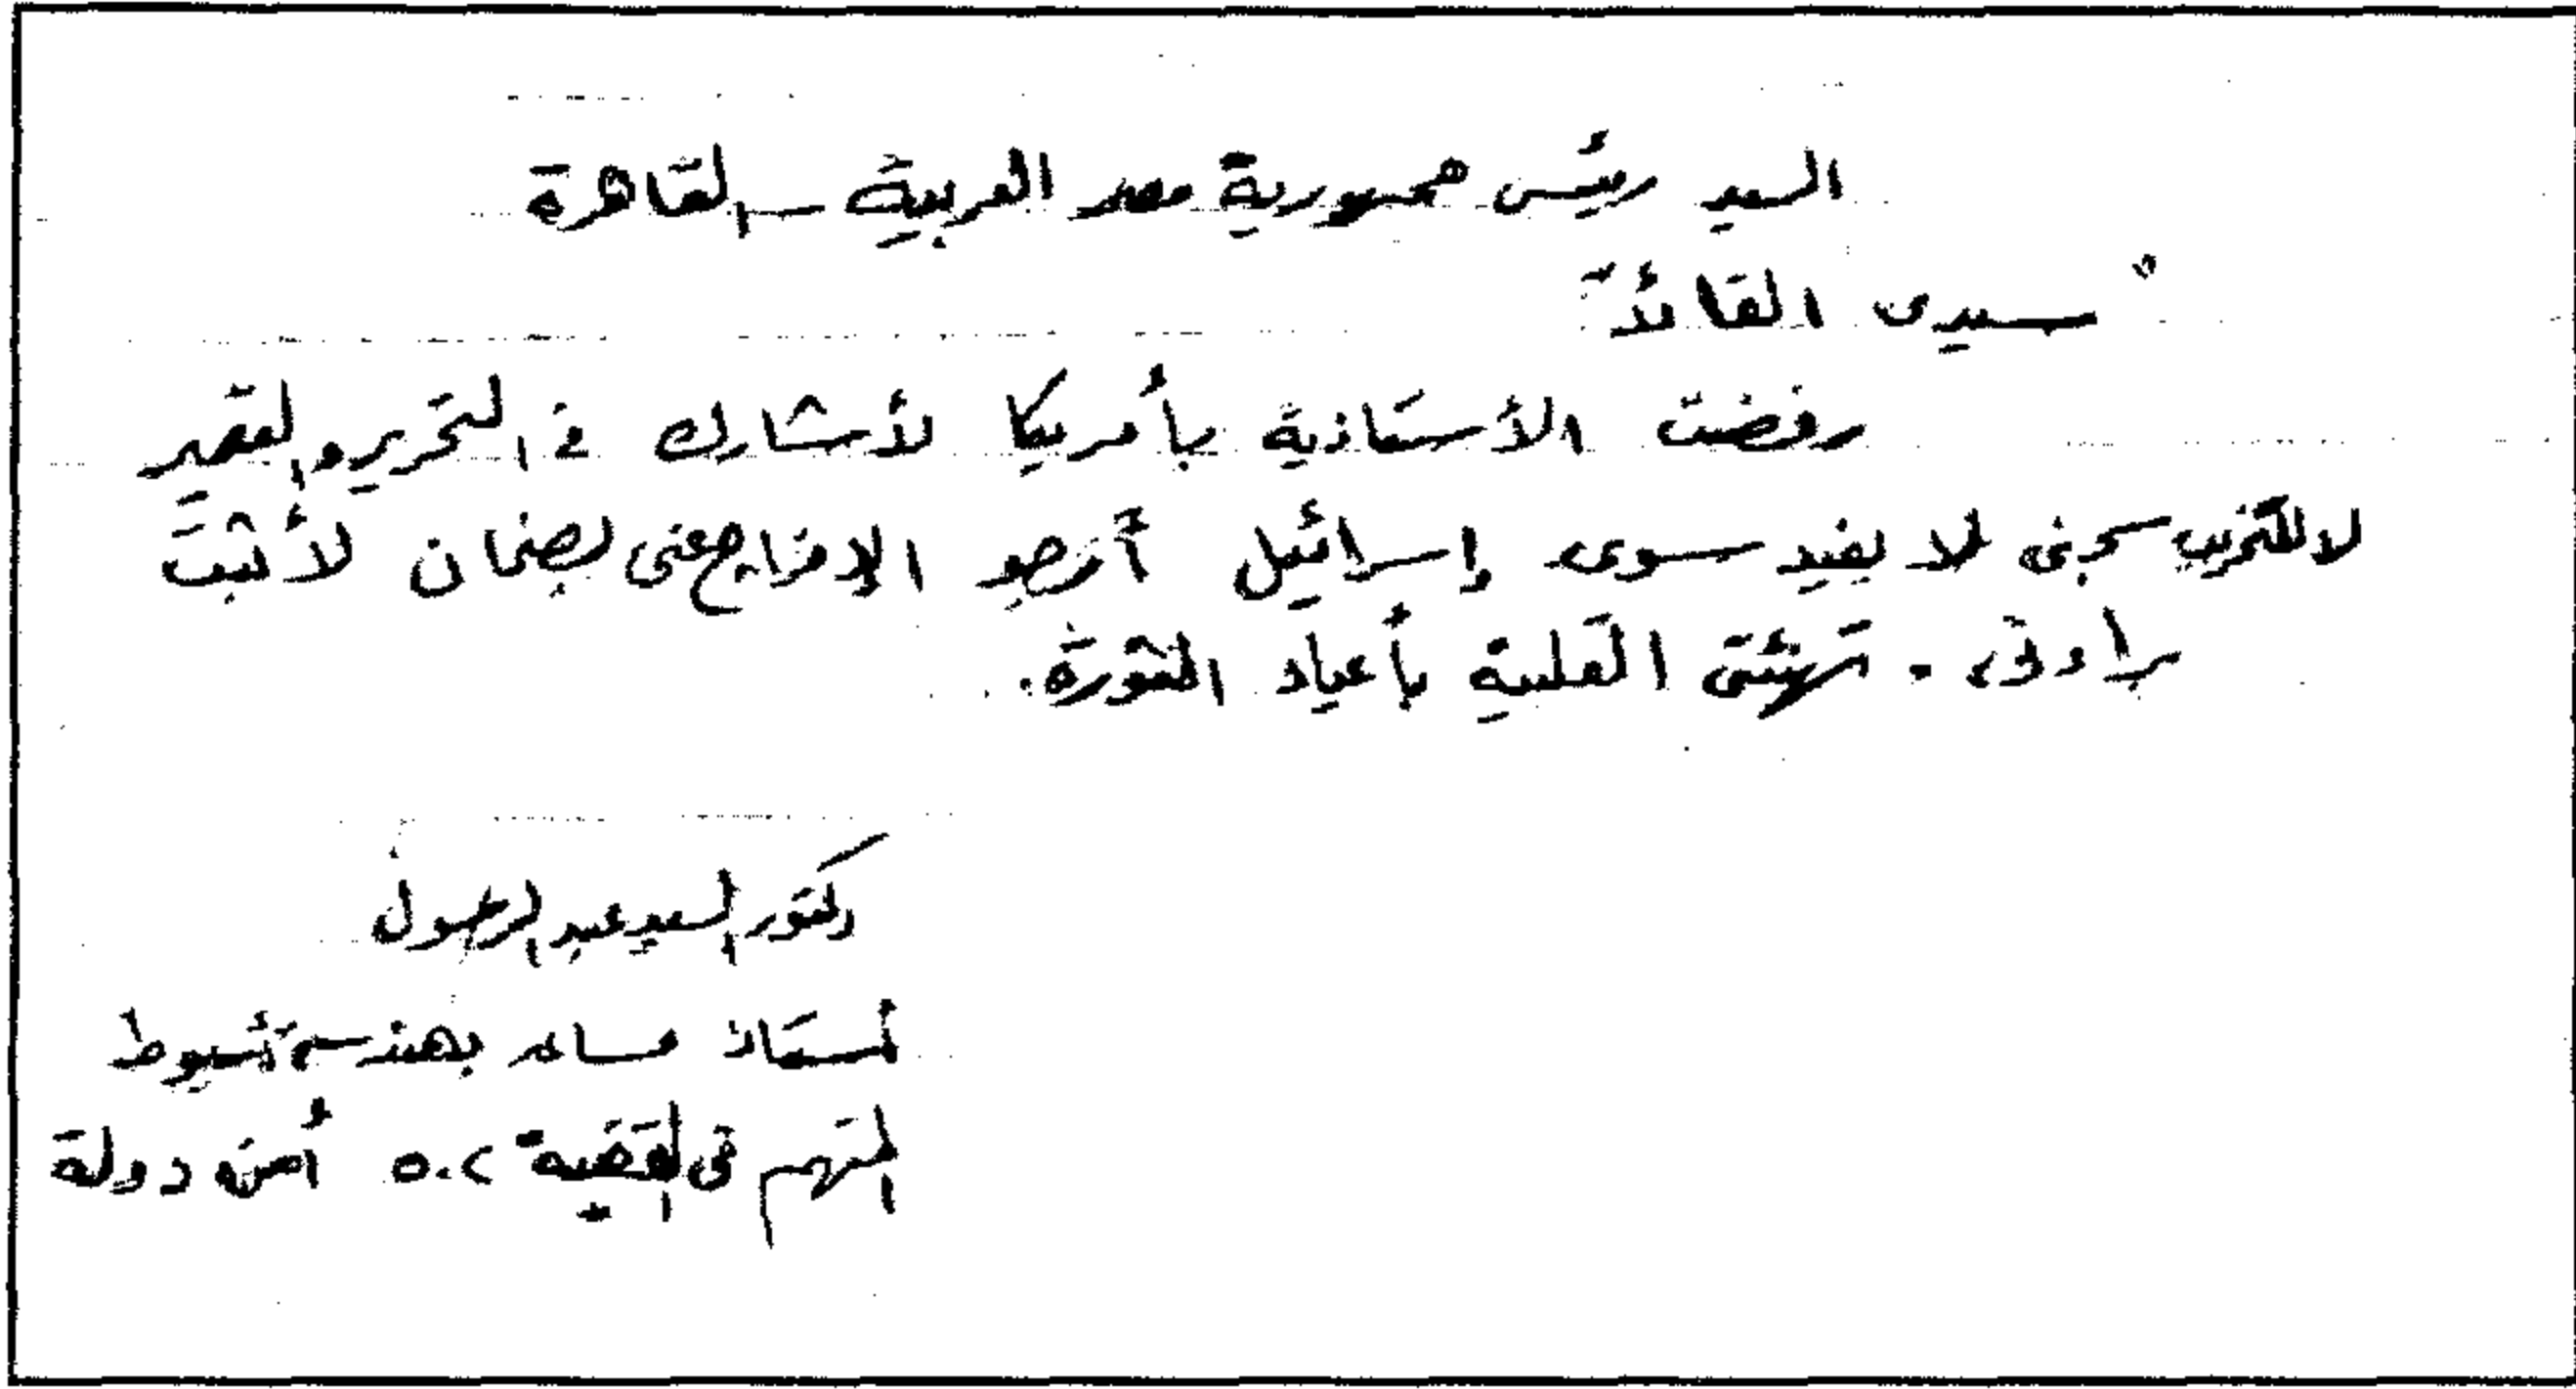 السيد رئيس جمهورية مصر العربية - القاهرة
" سيدى القائد "
رفضت الأستاذية بأمريكا لأشارك فى التحرير والتعمير
لا للتخريب سجنى لا يفيد سوى إسرائيل أرجو الإفراج عنى بضمان لأثبت
براءتى . تهنئتى القلبية بأعياد الثورة .
دكتور السيد عبد الرسول
أستاذ مساعد بهندسة أسيوط
المتهم فى القضية ٥٠٢ أمن دولة